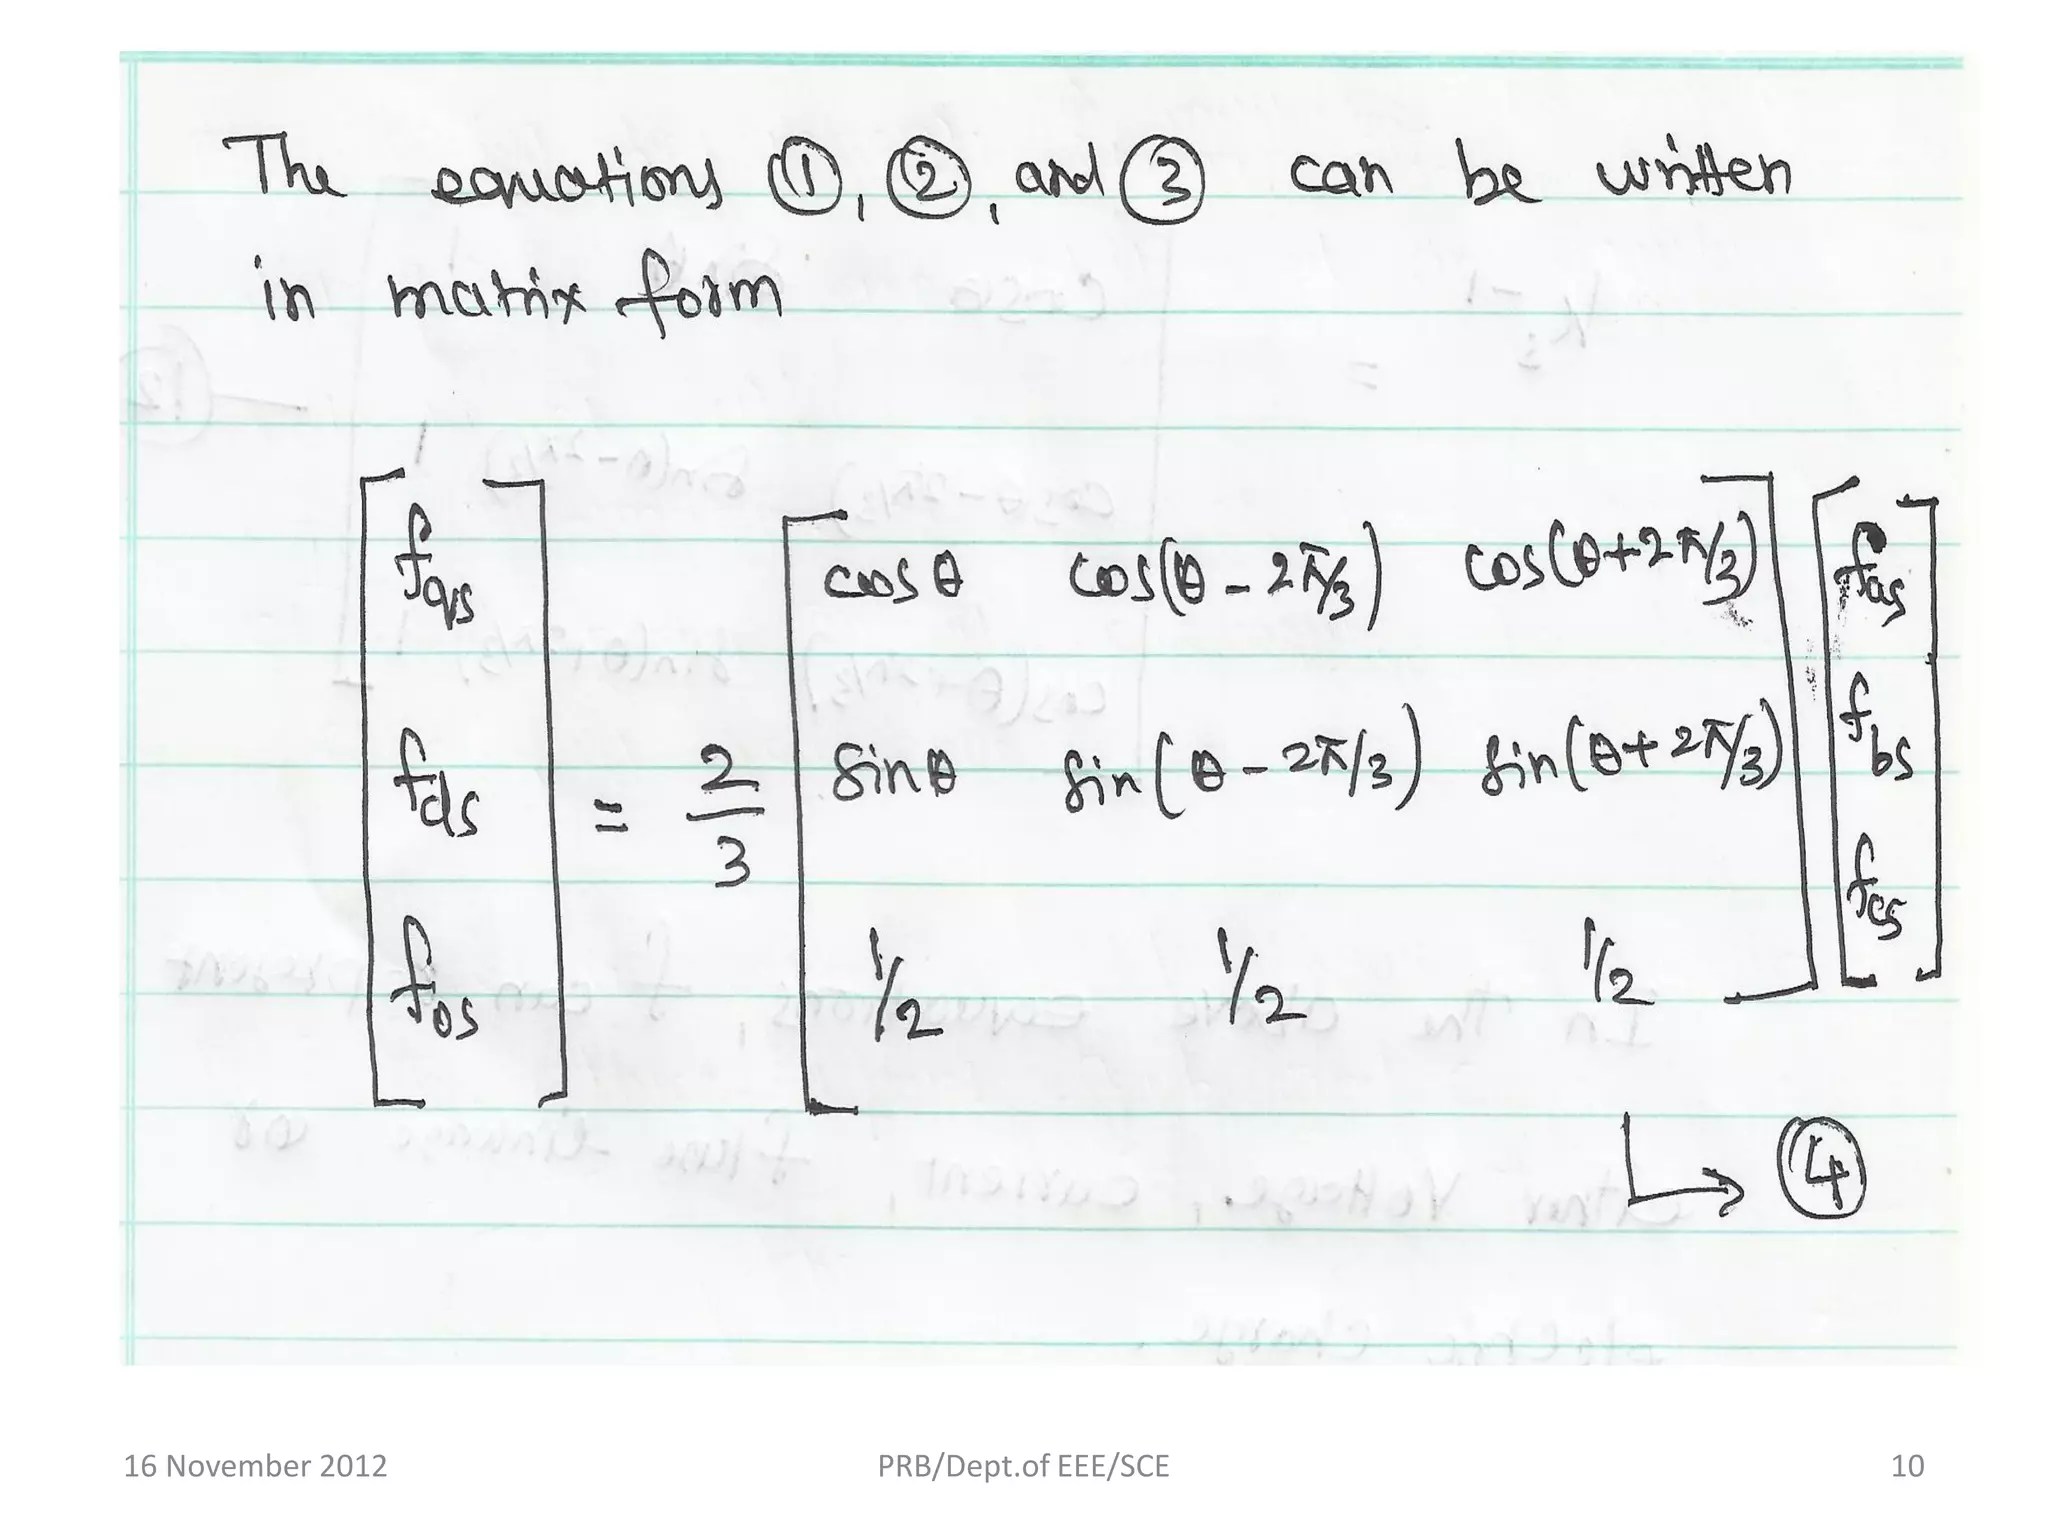 The equations ①, ②, and ③ can be written
in matrix form
[fqs fds f0s] = 2/3 [cos θ cos(θ - 2π/3) cos(θ+2π/3)
sin θ sin(θ - 2π/3) sin(θ+2π/3)
1/2 1/2 1/2] [fas fbs fcs]
④
16 November 2012 PRB/Dept.of EEE/SCE 10